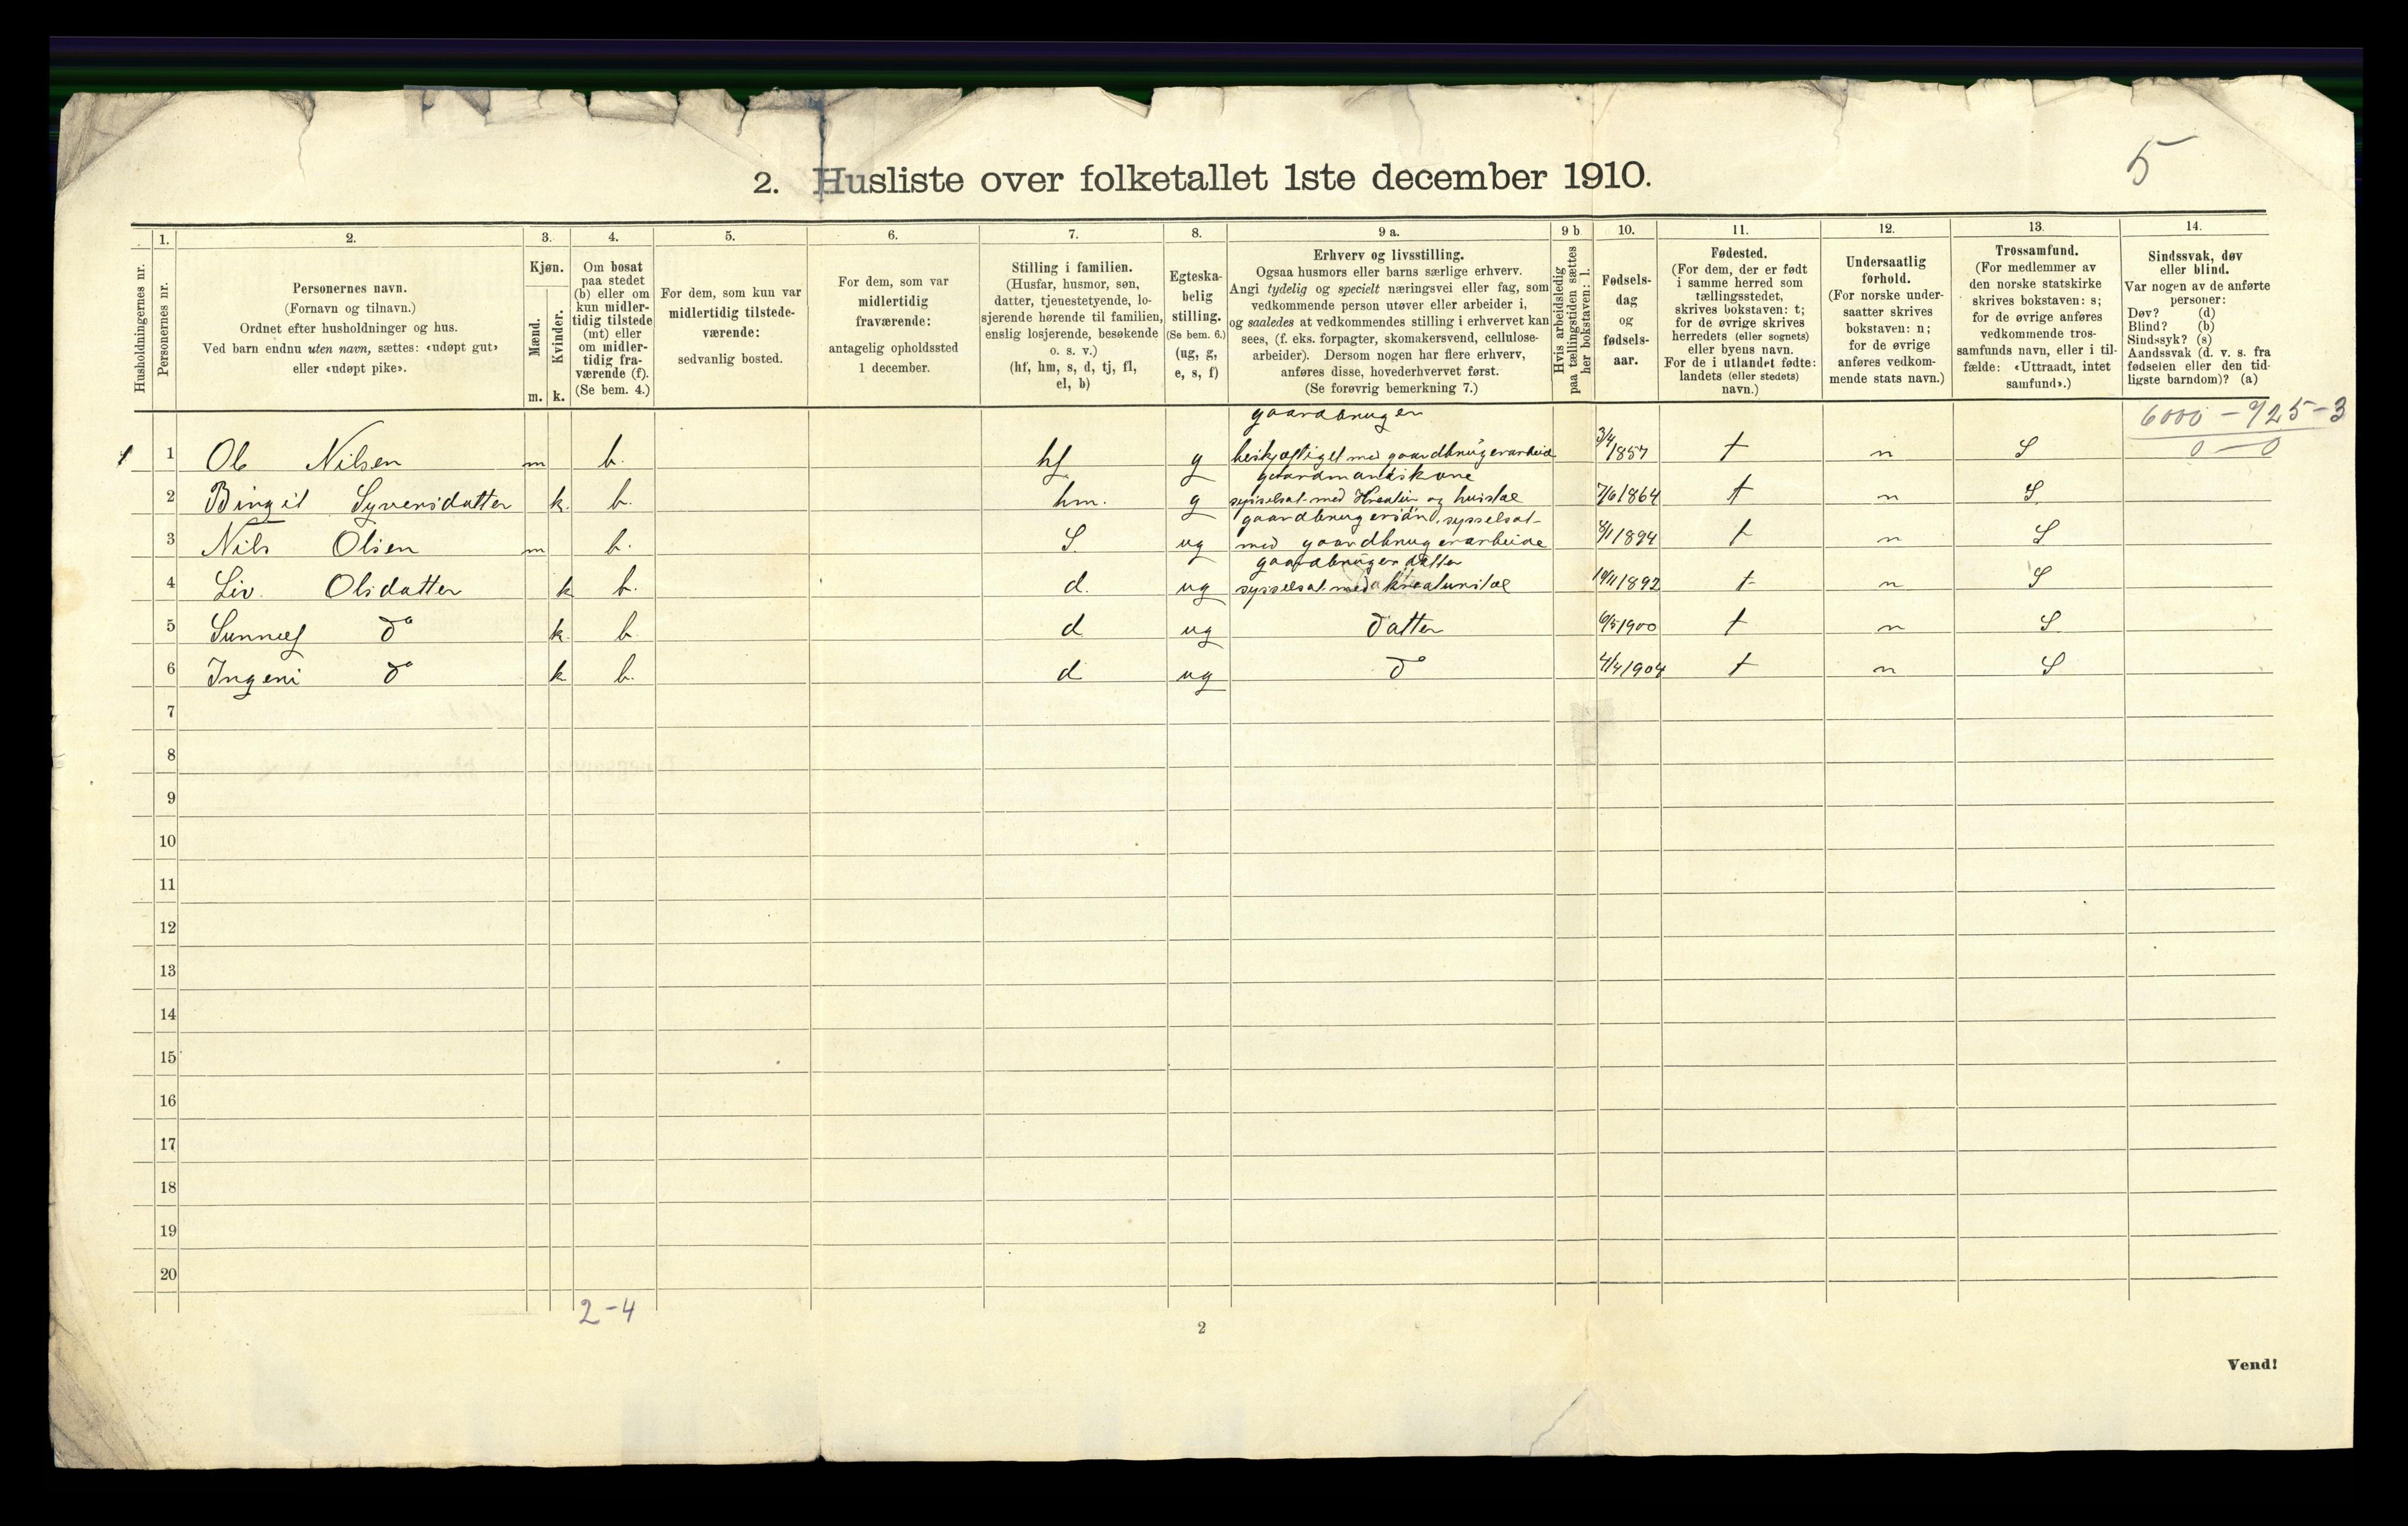 5
2. Husliste over folketallet 1ste december 1910.
Husholdningernes nr.
1.
Personernes nr.
2.
Personernes navn.
(Fornavn og tilnavn.)
Ordnet efter husholdninger og hus.
Ved barn endnu uten navn, sættes: «udøpt gut»
eller «udøpt pike».
3.
Kjøn.
Mænd.
Kvinder.
m. k.
4.
Om bosat
paa stedet
(b) eller om
kun midler-
tidig tilstede
(mt) eller
om midler-
tidig fra-
værende (f).
(Se bem. 4.)
5.
For dem, som kun var
midlertidig tilstede-
værende:
sedvanlig bosted.
6.
For dem, som var
midlertidig
fraværende:
antagelig opholdssted
1 december.
7.
Stilling i familien.
(Husfar, husmor, søn,
datter, tjenestetyende, lo-
sjerende hørende til familien,
enslig losjerende, besøkende
o. s. v.)
(hf, hm, s, d, tj, fl,
el, b)
8.
Egteska-
belig
stilling.
(Se bem. 6.)
(ug, g,
e, s, f)
9 a.
Erhverv og livsstilling.
Ogsaa husmors eller barns særlige erhverv.
Angi tydelig og specielt næringsvei eller fag, som
vedkommende person utøver eller arbeider i,
og saaledes at vedkommendes stilling i erhvervet kan
sees, (f. eks. forpagter, skomakersvend, cellulose-
arbeider). Dersom nogen har flere erhverv,
anføres disse, hovederhvervet først.
(Se forøvrig bemerkning 7.)
9 b
Hvis arbeidsledig
paa tællingstiden sættes
her bokstaven: l.
10.
Fødsels-
dag
og
fødsels-
aar.
11.
Fødested.
(For dem, der er født
i samme herred som
tællingsstedet,
skrives bokstaven: t;
for de øvrige skrives
herredets (eller sognets)
eller byens navn.
For de i utlandet fødte:
landets (eller stedets)
navn.)
12.
Undersaatlig
forhold.
(For norske under-
saatter skrives
bokstaven: n;
for de øvrige
anføres vedkom-
mende stats navn.)
13.
Trossamfund.
(For medlemmer av
den norske statskirke
skrives bokstaven: s;
for de øvrige anføres
vedkommende tros-
samfunds navn, eller i til-
fælde: «Uttraadt, intet
samfund».)
14.
Sindssvak, døv
eller blind.
Var nogen av de anførte
personer:
Døv? (d)
Blind? (b)
Sindssyk? (s)
Aandssvak (d. v. s. fra
fødselen eller den tid-
ligste barndom)? (a)
6000 - 925 - 3
0 - 0
gaardbruger
1 1 Ole Nilsen m b. hf g beskjæftiget med gaardbrugerarbeide 3/4 1857 t n S
gaardmandskone
2 Birgit Syversdatter k. b. hm. g sysselsat med Kreatur og husstel 7/6 1864 t n S
gaardbrugersön, sysselsat
3 Nils Olsen m b. S. ug med gaardbrugerarbeide 8/1 1894 t n S
gaardbruger datter
4 Liv Olsdatter k b. d. ug sysselsat med kreaturstel 19/11 1892 t n S
5 Sunnef do k. b d ug datter 6/5 1900 t n S
6 Ingeri do k b. d ug do 4/4 1904 t n S
7
8
9
10
11
12
13
14
15
16
17
18
19
20
2-4
2
Vend!